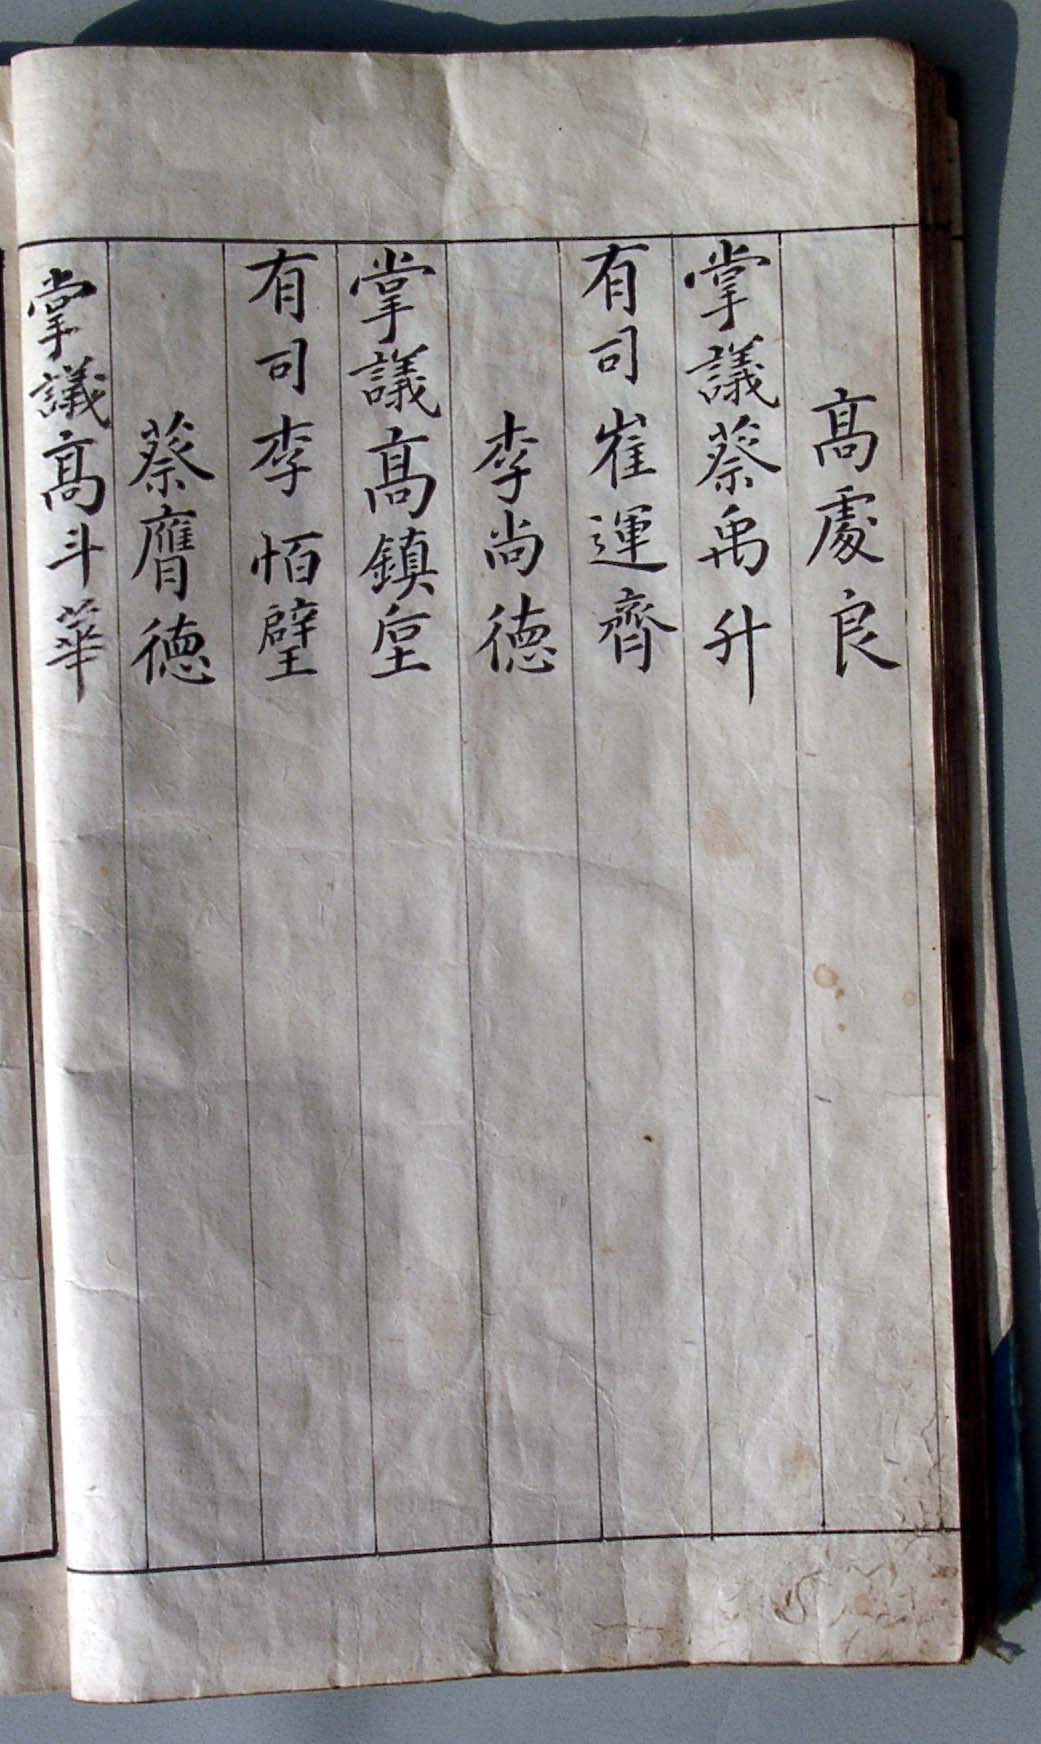 高處良
掌議蔡禹升
有司崔運齊
李尚德
掌議高鎮垕
有司李栢壁
蔡膺德
掌議高斗華